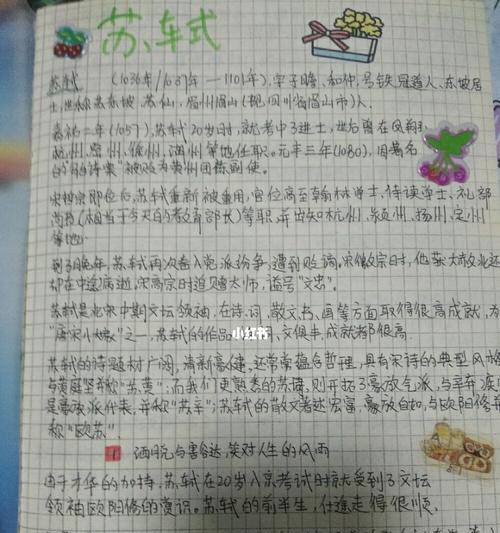 苏轼
苏轼 (1036年/1037年—1101年),字子瞻、和仲,号铁冠道人、东坡居
士,世称苏东坡、苏仙,眉州眉山(现四川省眉山市)人。
嘉祐二年(1057),苏轼20岁时,就考中了进士,此后曾在凤翔、
杭州、密州、徐州、湖州等地任职。元丰三年(1080),因著名
的“乌台诗案”被贬为黄州团练副使。
宋哲宗即位后,苏轼重新被重用,官位高至翰林学士、侍读学士、礼部
尚书(相当于今天的教育部长)等职,并出知杭州、颍州、扬州、定州
等地。
到了晚年,苏轼再次卷入党派纷争,遭到贬谪。宋徽宗时,他获大赦北还
却在中途病逝。宋高宗时追赠太师,谥号“文忠”。
苏轼是北宋中期文坛领袖,在诗、词、散文、书、画等方面取得很高成就,为
“唐宋八大家”之一,苏轼的作品 、文俱丰,成就都很高
小红书
苏轼的诗题材广阔,清新豪健,还常常蕴含哲理,具有宋诗的典型风格
与黄庭坚并称“苏黄”;而我们更熟悉的苏词,则开拓了豪放气派,与辛弃疾
是豪放派代表,并称“苏辛”;苏轼的散文著述宏富,豪放自如,与欧阳修并
称“欧苏”
1 洒脱与豁达,笑对人生的风雨
由于才华的加持,苏轼在20岁入京考试时就受到了文坛
领袖欧阳修的赏识。苏轼的前半生,仕途走得很顺